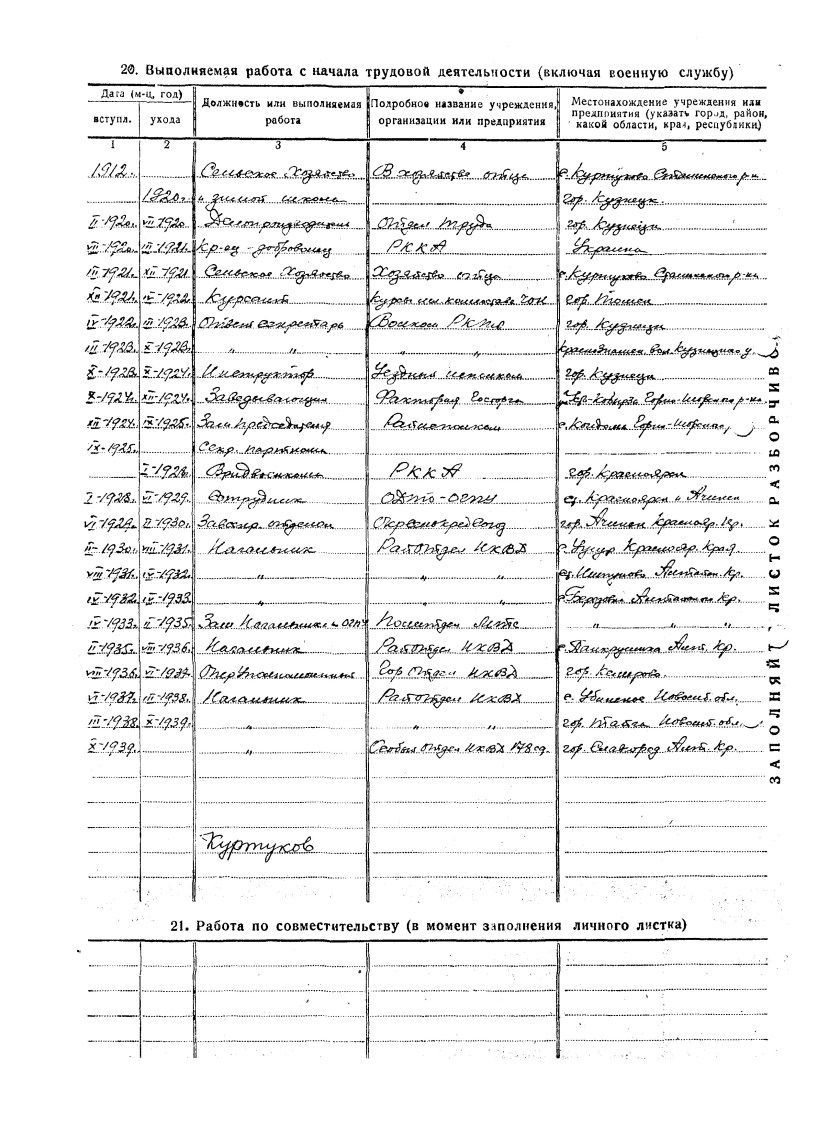 20. Выполняемая работа с начала трудовой деятельности (включая военную службу)
Дата (м-ц, год) Должность или выполняемая работа Подробное название учреждения, организации или предприятия Местонахождение учреждения или предприятия (указать город, район, какой области, края, республики)
вступл. ухода
1 2 3 4 5
1912. Сельское Хозяйство В хозяйстве отца с. Куртуково Сталинского р-н
1920г. и зимой школа гор. Кузнецк.
II-1920. VII-1920. Делопроизводитель Отдел труда гор. Кузнецк
VII-1920. III-1921. Кр-ец - доброволец РККА Украина
III-1921. XII-1921. Сельское Хозяйство Хозяйство отца с. Куртуково Сталинского р-на
XII-1921. IV-1922. Курсант Курсы комсостава ЧОН гор. Томск
IV-1922. III-1923. Ответ секретарь Волком РКП гор. Кузнецк
III-1923. X-1923. " " " " вол. Кузнецкого у.
X-1923. X-1924. Инструктор Уездный исполком гор. Кузнецк
X-1924. XII-1924. Заведывающий Фактория Госторга Горно-Шорского р-на
XII-1924. IX-1925. Зам Председателя Райисполкома с. Кондома Горно-Шорского,
IX-1925. Секр.
I-1928. РККА гор. Красноярск
I-1928. VI-1929. Сотрудник ОДТО-ОГПУ ст. Красноярск и Ачинск
VI-1929. II-1930. отделом гор. Ачинск Краснояр. Кр.
II-1930. VIII-1931. Начальник РайОтдел НКВД с. Ужур Краснояр. Край
VIII-1931. IV-1932. " " " Алтайск Кр.
IV-1932. IV-1933. " Алтайском Кр.
IV-1933. II-1935. Зам Начальника ОГПУ Политотдел " " "
II-1935. VIII-1936. Начальник РайОтдел НКВД с. Панкрушиха Алт. Кр.
VIII-1936. VI-1937. ОперУполномоченный Гор Отдел НКВД гор. Кемерово.
VI-1937. III-1938. Начальник РайОтдел НКВД с. Убинское Новосиб. обл.
III-1938 X-1939. " " " гор. Тайга Новосиб. обл.
X-1939. " Особый Отдел НКВД 178 сд. гор. Славгород Алт. Кр.
Куртуков
21. Работа по совместительству (в момент заполнения личного листка)
ЗАПОЛНЯЙТЕ ЛИСТОК РАЗБОРЧИВО